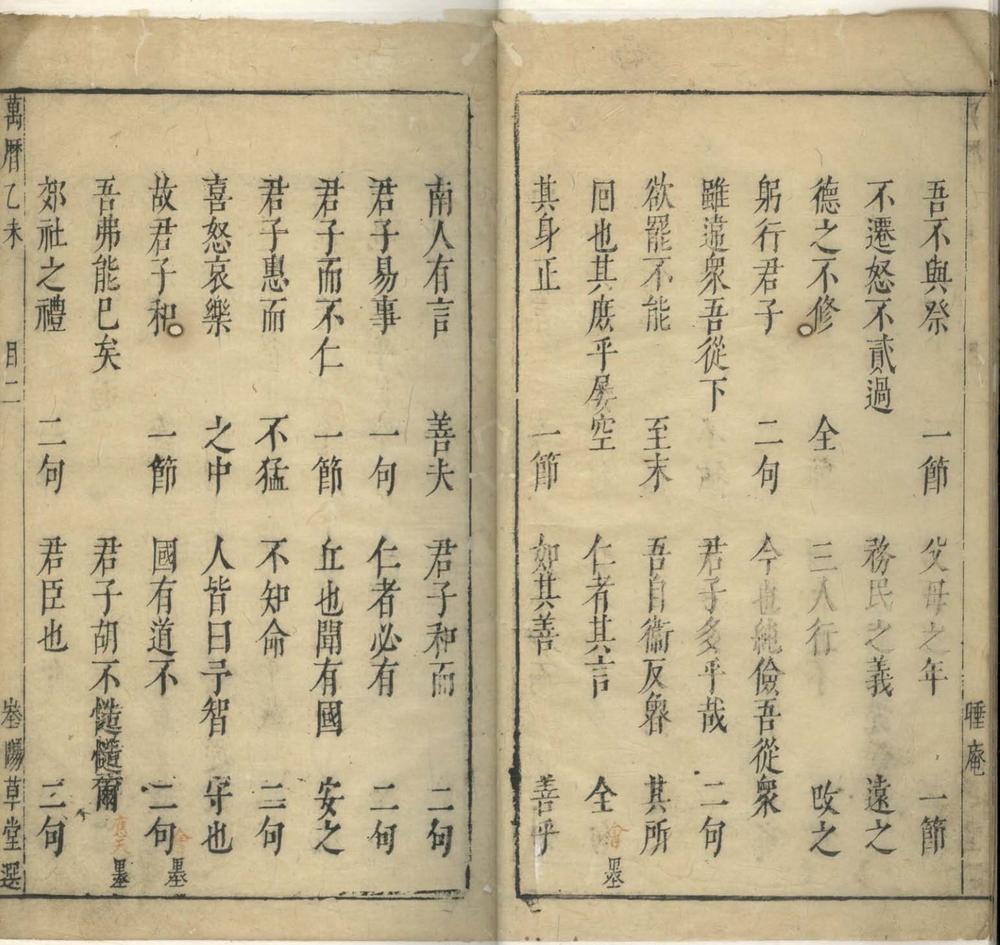 吾不與祭 一節 父母之年 一節
不遷怒不貳過 務民之義 遠之
德之不修 全 三人行 改之
躬行君子 二句 今也純儉吾從眾
雖違衆吾從下 君子多乎哉 二句
欲罷不能 至末 吾自衞反魯 其所
回也其庶乎屢空 仁者其言 全 會墨
其身正 一節 如其善 善乎
睡庵
南人有言 善夫 君子和而 二句
君子易事 一句 仁者必有 二句
君子而不仁 一節 丘也聞有國 安之
君子惠而 不猛 不知命 二句
喜怒哀樂 之中 人皆曰予智 守也
故君子和 一節 國有道不 二句 會墨
吾弗能已矣 君子胡不慥慥爾 應天墨
郊社之禮 二句 君臣也 三句
萬曆乙未 目二 草堂選